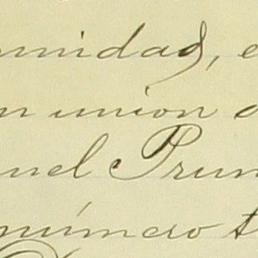 unidad, e
n union d
uel Prun
número t